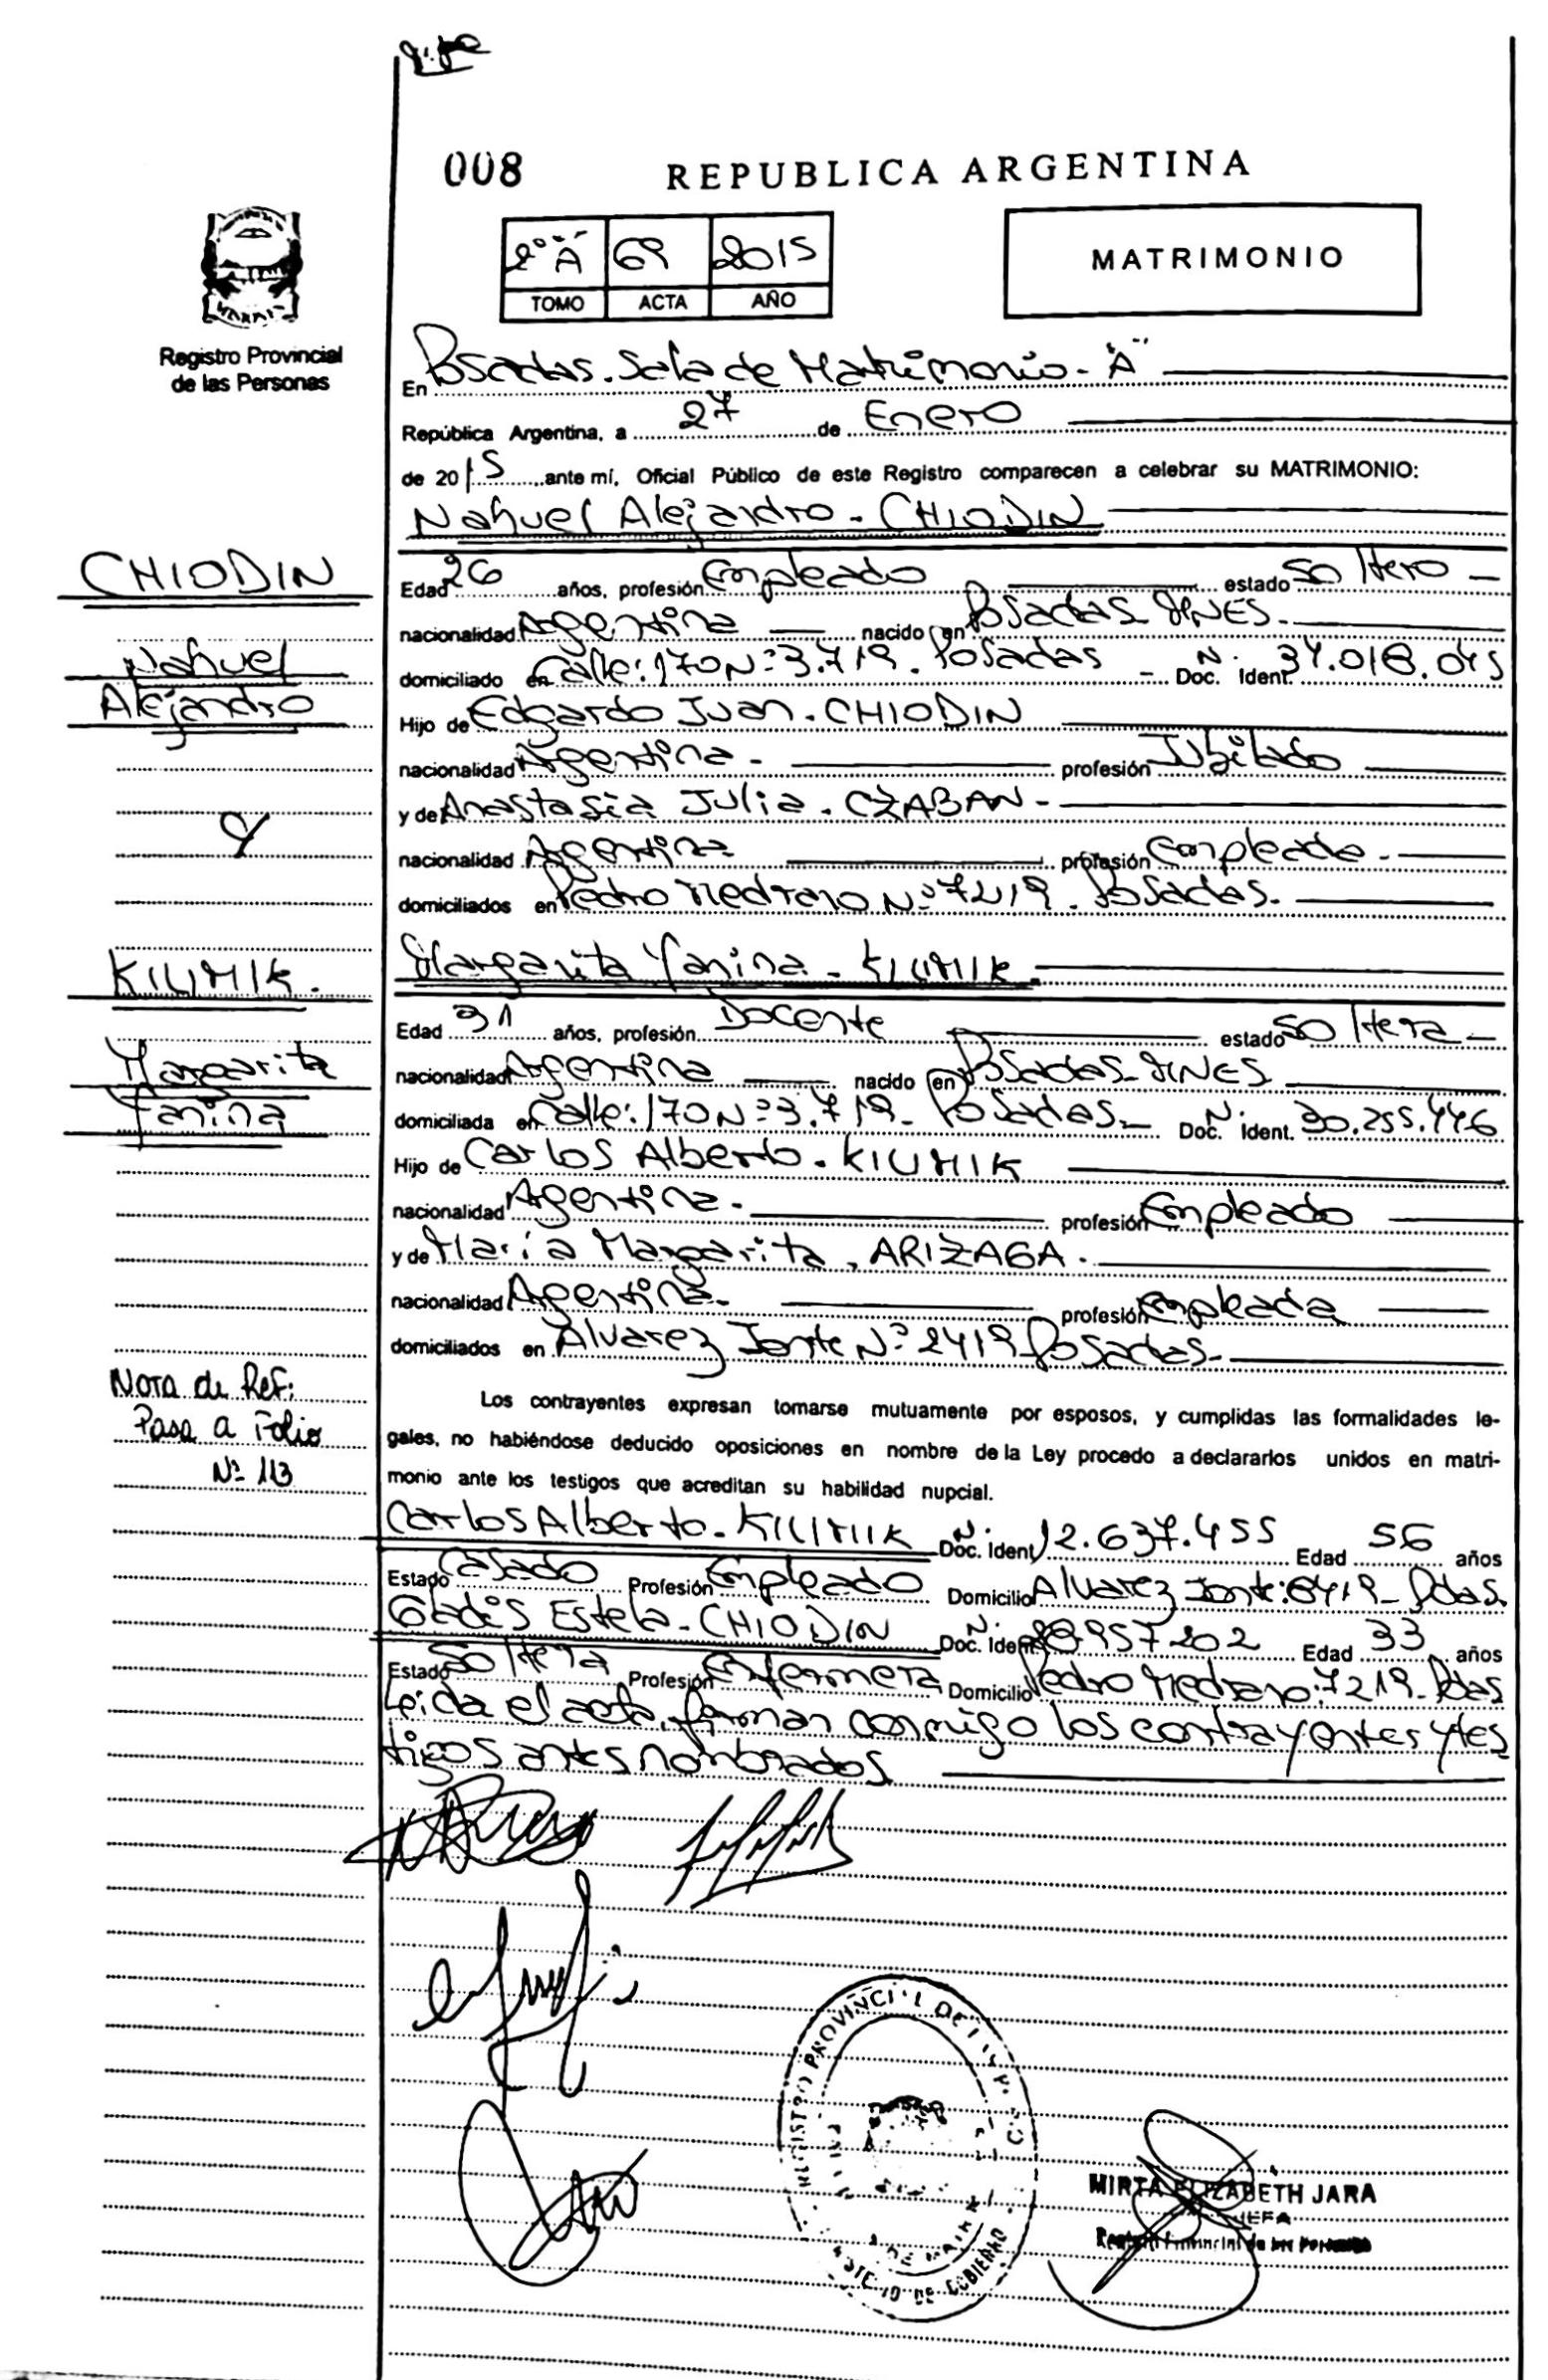 008 REPUBLICA ARGENTINA
2° "A" 69 2015
TOMO ACTA AÑO
MATRIMONIO
Registro Provincial
de las Personas
En Posadas. Sala de Matrimonio - "A"
República Argentina, a 27 de Enero
de 2015 ante mí, Oficial Público de este Registro comparecen a celebrar su MATRIMONIO:
Nahuel Alejandro - CHIODIN
CHIODIN
Nahuel
Alejandro
Edad 26 años, profesión Empleado estado Soltero
nacionalidad Argentina nacido en Posadas MNES.
domiciliado en Calle: 170 N° 3.719. Posadas - Doc. N. Ident 34.018.045
Hijo de Edgardo Juan. CHIODIN
nacionalidad Argentina. profesión Jubilado
y de Anastasia Julia. CZABAN-
Y
nacionalidad Argentina profesión Empleada.
domiciliados en Pedro Medrano N° 7219. Posadas.
KIUMIK.
Margarita
Yanina
Margarita Yanina - KIUMIK
Edad 31 años, profesión Docente estado Soltera
nacionalidad Argentina nacido en Posadas-MNES
domiciliada en Calle: 170 N° 3.719- Posadas- Doc. N. Ident. 30.255.446
Hijo de Carlos Alberto. KIUMIK
nacionalidad Argentina. profesión Empleado
y de María Margarita. ARIZAGA.
nacionalidad Argentina. profesión Empleada
domiciliados en Alvarez Jonte N° 2419 Posadas.
Nota de Ref:
Pasa a Folio
N° 113
Los contrayentes expresan tomarse mutuamente por esposos, y cumplidas las formalidades le-
gales, no habiéndose deducido oposiciones en nombre de la Ley procedo a declararlos unidos en matri-
monio ante los testigos que acreditan su habilidad nupcial.
Carlos Alberto. KIUMIK Doc. N. Ident 12.637.455 Edad 56 años
Estado Casado Profesión Empleado Domicilio Alvarez Jonte: 6419- Pdas.
Gladis Estela. CHIODIN Doc. N. Ident 28957202 Edad 33 años
Estado Soltera Profesión Enfermera Domicilio Pedro Medrano: 7219- Pdas
Leida el acta, firman conmigo los contrayentes y tes
tigos antes nombrados
REGISTRO PROVINCIAL DE
MINISTERIO DE GOBIERNO
MIRTA ELIZABETH JARA
JEFA
Registro Provincial de las Personas